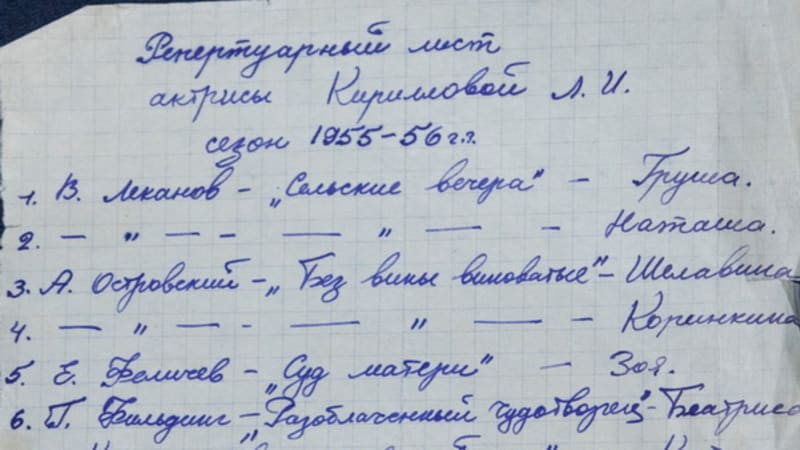 Репертуарный лист
актрисы Кирилловой Л. И.
сезон 1955-56 г.г.
1. В. Леканов - „Сельские вечера" - Груша.
2. — " — - — " — - Наташа.
3. А. Островский - „Без вины виноватые" - Шелавина
4. — " — - — " — - Коринкина
5. Е. Феличев - „Суд матери" - Зоя.
6. Г. Фильдинг - „Разоблаченный чудотворец" - Беатриса